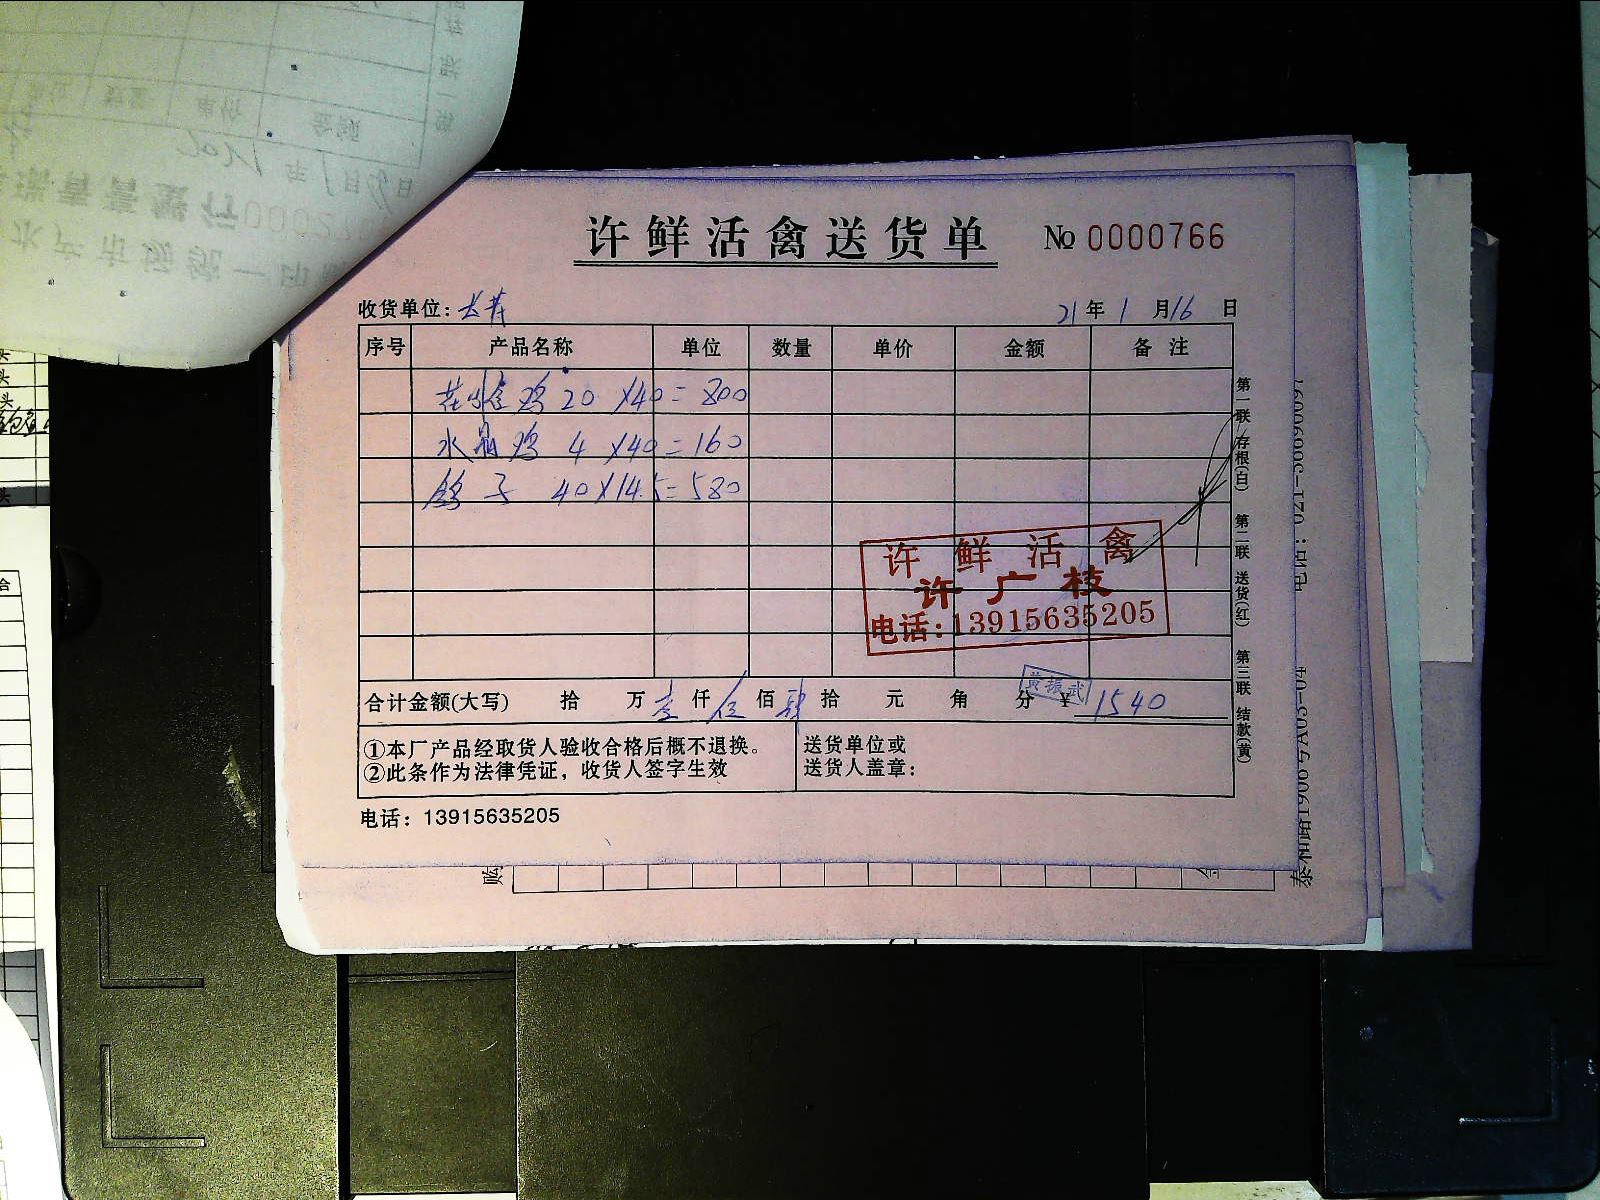 许鲜活禽送货单 № 0000766
收货单位: 长寿 21年1月16日
序号 产品名称 单位 数量 单价 金额 备注
鸡 20 ×40=800
水晶鸡 4 ×40=160
鸽子 40×14.5=580
许鲜活禽
许广枝
电话:13915635205
合计金额(大写) 拾 万 壹 仟 伍 佰 肆 拾 元 角 分 ¥ 1540
黄振武
①本厂产品经取货人验收合格后概不退换。
②此条作为法律凭证，收货人签字生效
送货单位或
送货人盖章：
电话：13915635205
第一联 存根(白) 第二联 送货(红) 第三联 结款(黄)
购
2021年1月 日
单价
金额